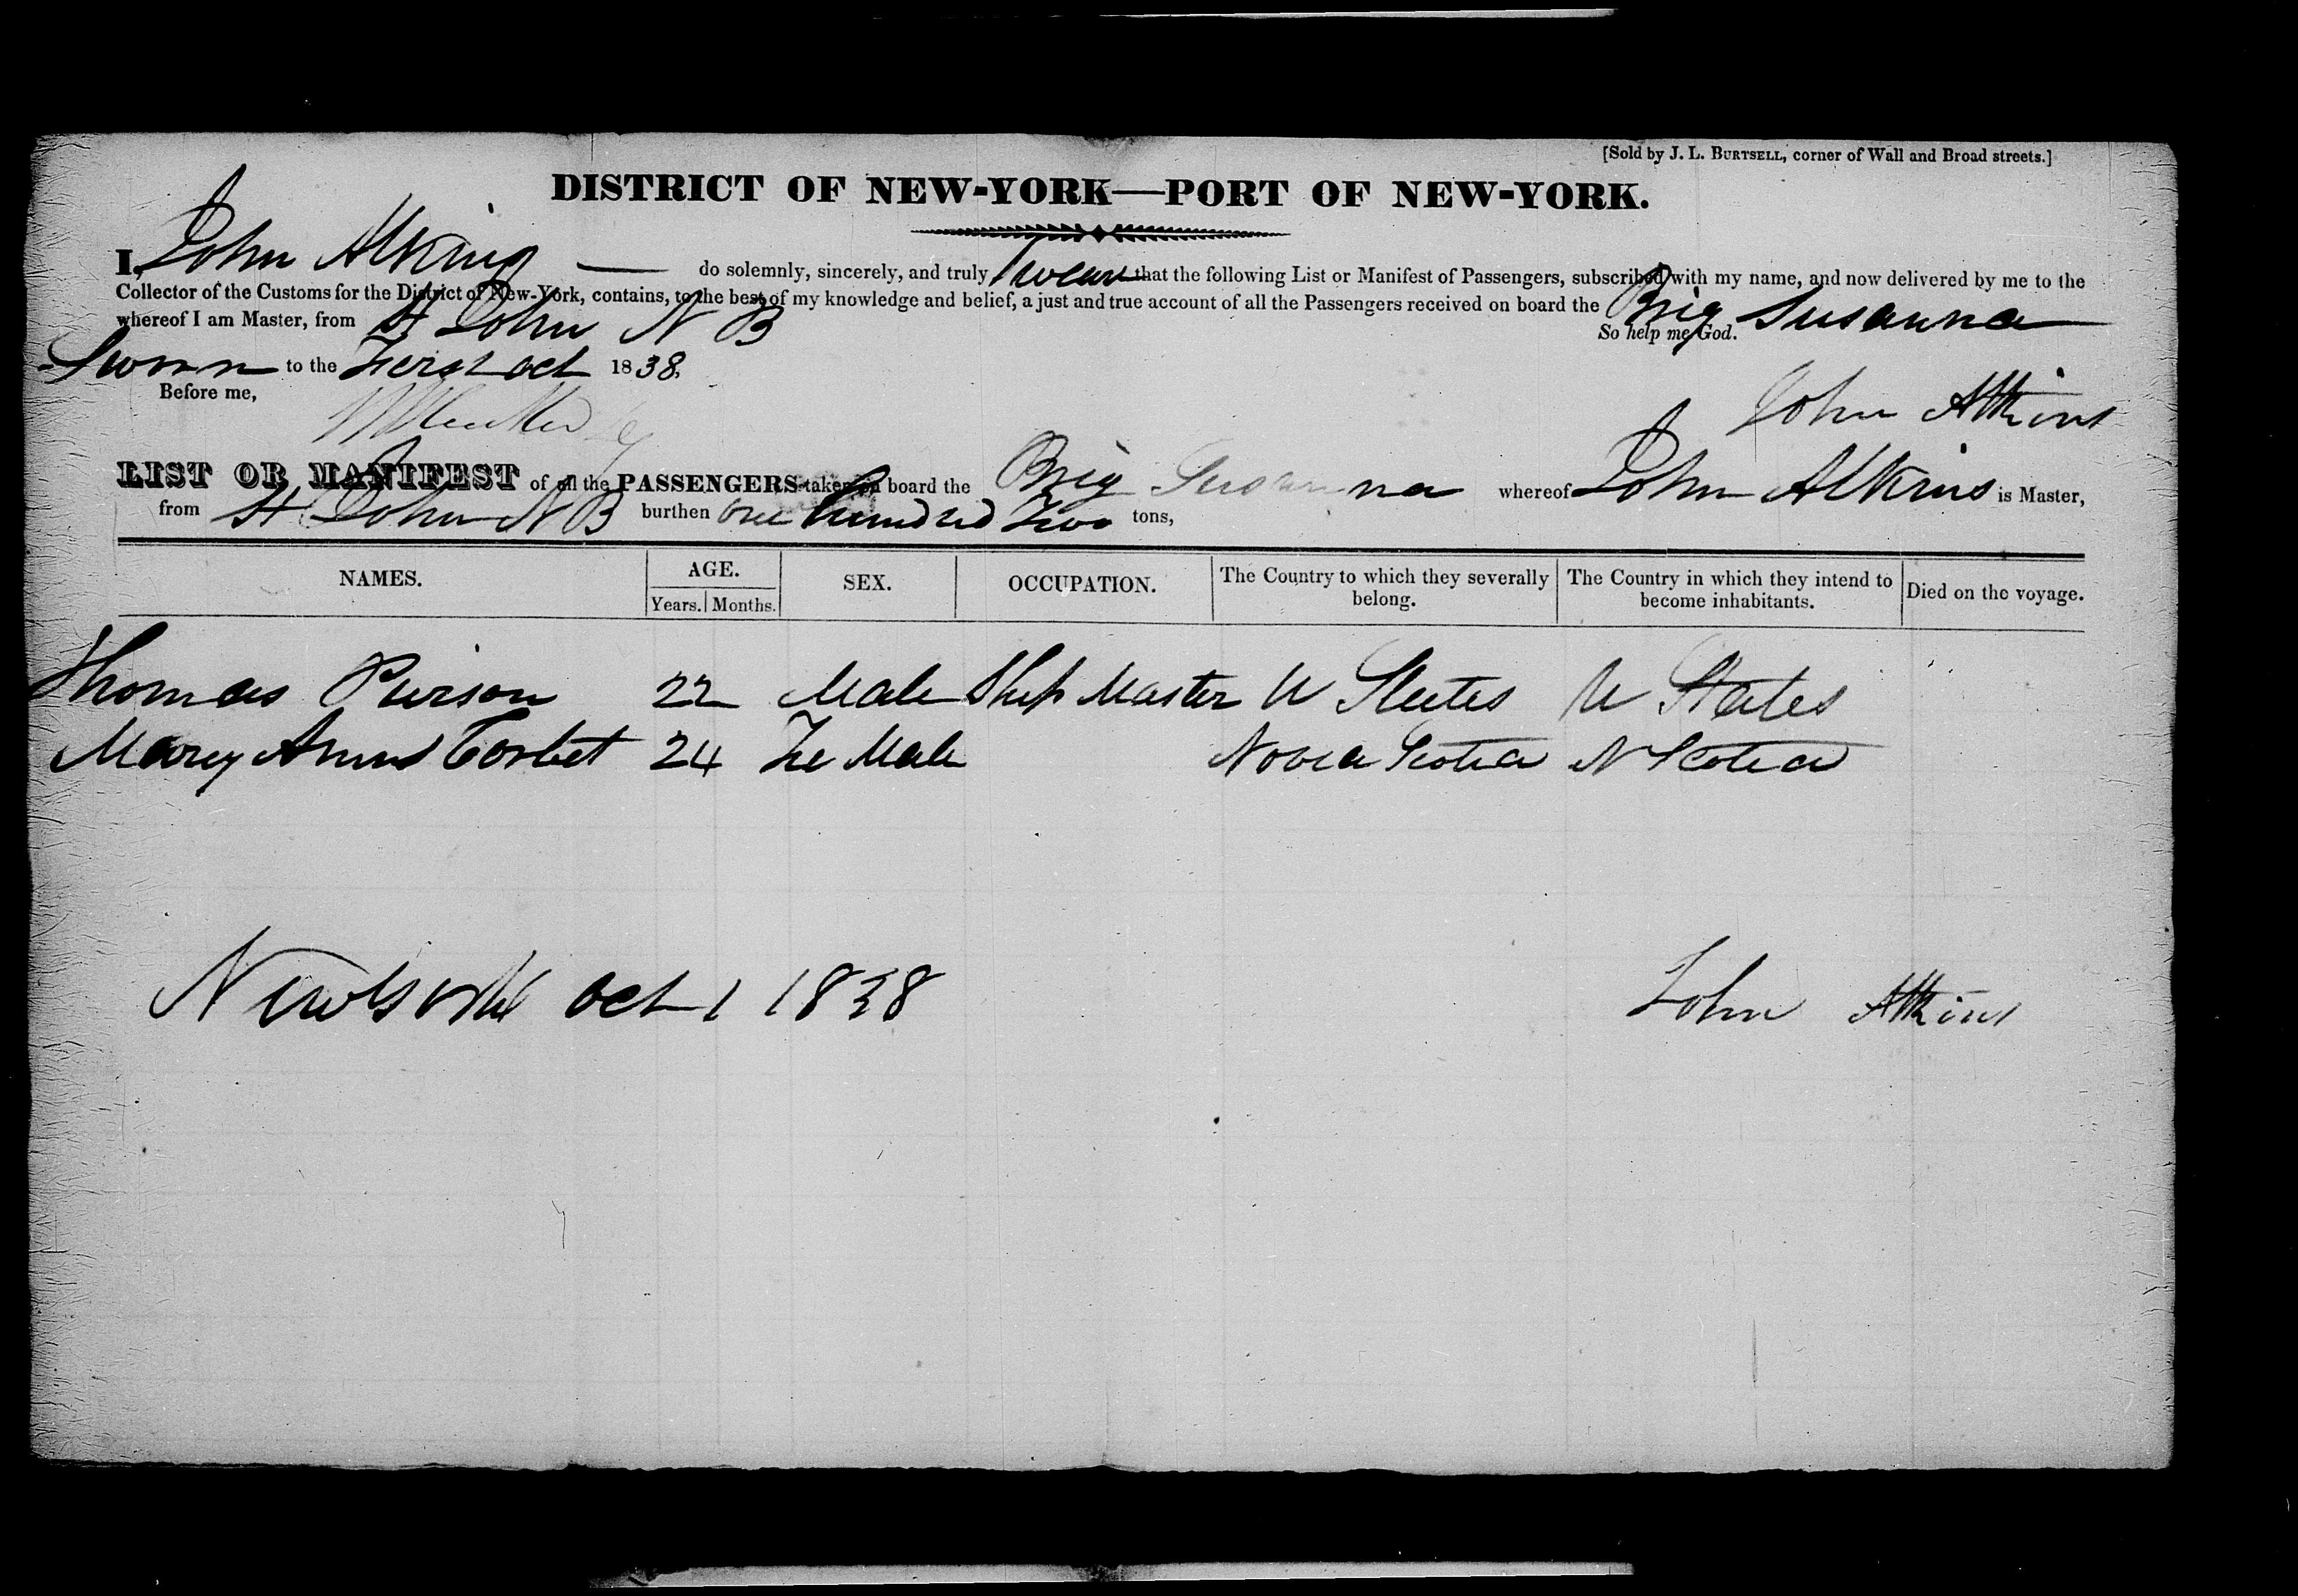 [Sold by J. L. BURTSELL, corner of Wall and Broad streets.]
DISTRICT OF NEW-YORK—PORT OF NEW-YORK.
I, John Atkins — do solemnly, sincerely, and truly Swear that the following List or Manifest of Passengers, subscribed with my name, and now delivered by me to the
Collector of the Customs for the District of New-York, contains, to the best of my knowledge and belief, a just and true account of all the Passengers received on board the Brig Susanna
whereof I am Master, from St John N B So help me God.
Sworn to the First oct 1838.
Before me,
John Atkins
LIST OR MANIFEST of all the PASSENGERS taken on board the Brig Susanna whereof John Atkins is Master,
from St John N B burthen one hundred Two tons,
NAMES. AGE. SEX. OCCUPATION. The Country to which they severally belong. The Country in which they intend to become inhabitants. Died on the voyage.
Years. Months.
Thomas Pierson 22 Male Ship Master U States U States
Marey Ann Corbet 24 Fe Male Nova Scotia N Scotia
oct 1 1838 John Atkins